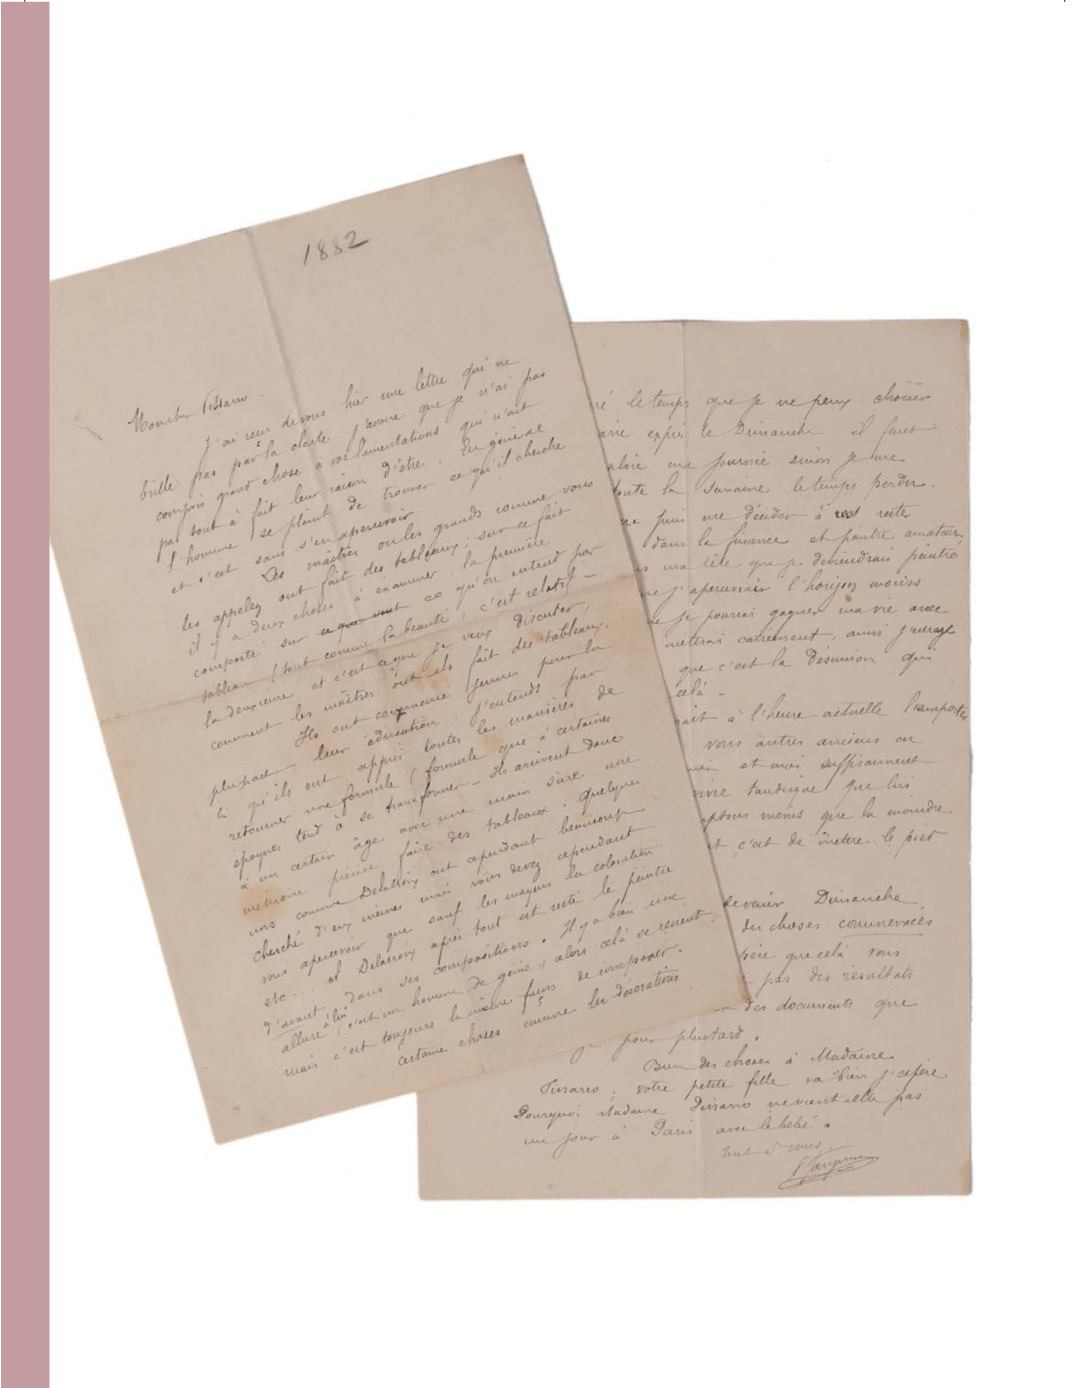 1882
Mon cher Pissarro.
J'ai reçu de vous hier une lettre qui ne
brille pas par la clarté j'avoue que je n'ai pas
compris grand chose à vos lamentations qui n'ont
pas tout à fait leur raison d'être. En général
l'homme se plaint de trouver ce qu'il cherche
et c'est sans s'en apercevoir.
Les maîtres ou les grands comme vous
les appelez ont fait des tableaux; sur ce fait
il y a deux choses à examiner la première
comporte sur ce qui veut ce qu'on entend par
tableau (tout comme la beauté, c'est relatif -
la deuxième et c'est ce que je veux discuter,
comment les maîtres ont ils fait des tableaux.
Ils ont commencé jeunes pour la
plupart leur éducation. J'entends par
là qu'ils ont appris toutes les manières de
retourner une formule (formule que à certaines
époques tend à se transformer - Ils arrivent donc
à un certain âge avec une main sûre une
mémoire précise faire des tableaux. Quelques
uns comme Delacroix ont cependant beaucoup
cherché d'eux mêmes mais vous devez cependant
vous apercevoir que sauf les moyens la coloration
etc... et Delacroix après tout est resté le peintre
d'avant dans ses compositions. Il y a bien une
allure à lui (c'est un homme de génie) alors celà se ressent
mais c'est toujours la même façon de composer.
certaine choses comme les décorations
le temps que je ne peux choisir
exprès le Dimanche il faut
ma journée sinon je me
toute la semaine le temps perdu.
ne puis me décider à rest rester
dans la finance et peintre amateur,
ma tête que je deviendrais peintre
j'apercevrais l'horizon moins
je pourrai gagner ma vie avec
carrément, aussi j'enrage
que c'est la Désunion qui
celà -
à l'heure actuelle l'emporter
vous autres anciens ou
et moi suffiraient
vivre tandisque que lui
moins que la moindre
c'est de mettre le pied
devenir Dimanche
des choses commencées
que celà vous
pas des résultats
des documents que
pour plus tard.
Bien des choses à Madame
Pissarro, votre petite fille va bien j'espère
Pourquoi Madame Pissarro ne vient elle pas
un jour à Paris avec le bébé.
Tout à vous.
P Gauguin